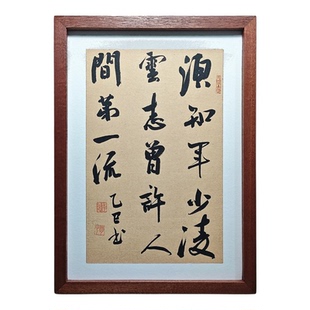 須知年少淩
雲志曾許人
間第一流
乙巳书